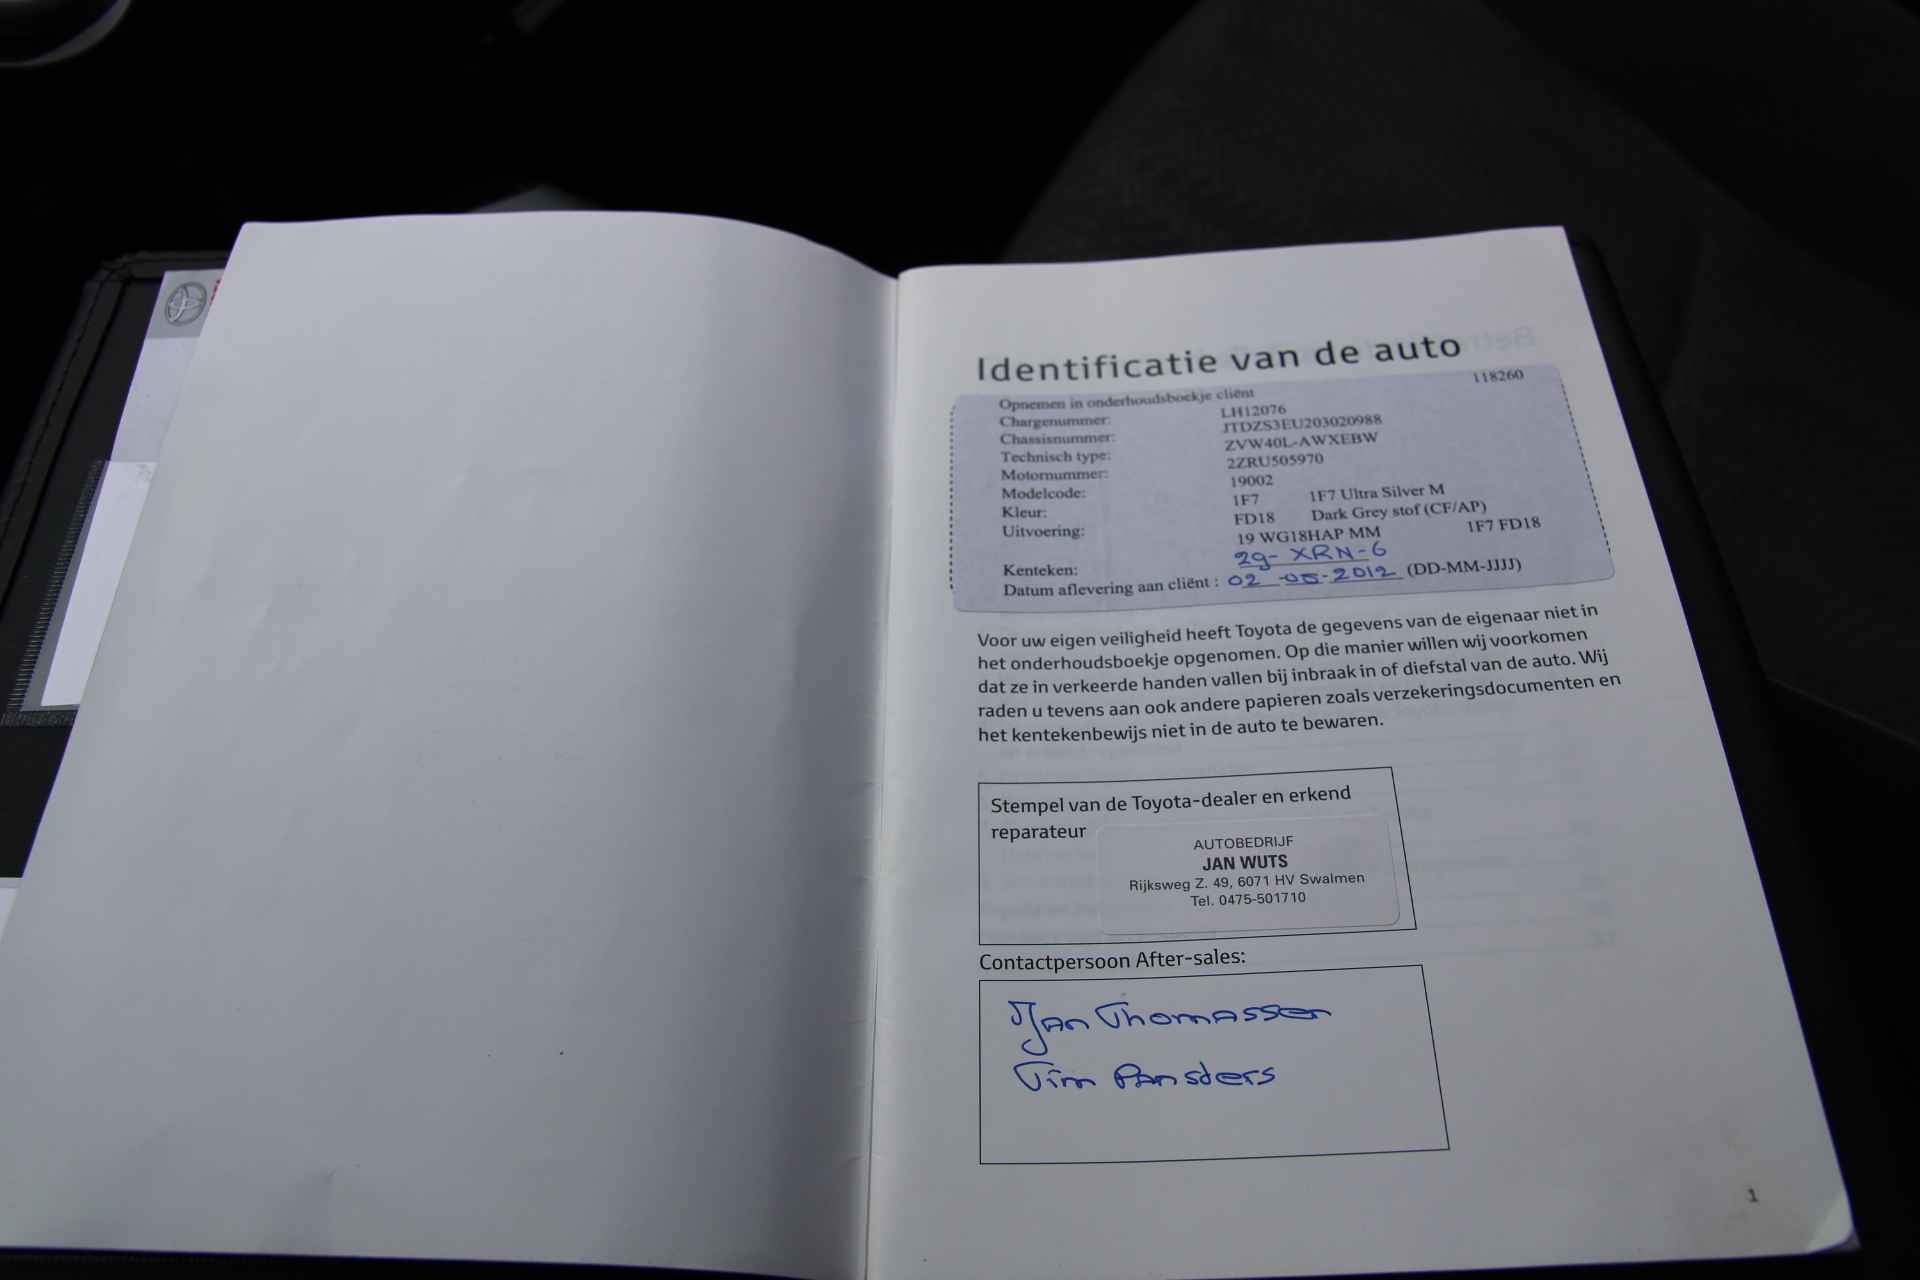 Identificatie van de auto
118260
Opnemen in onderhoudsboekje cliënt
Chargenummer: LH12076
Chassisnummer: JTDZS3EU203020988
Technisch type: ZVW40L-AWXEBW
Motornummer: 2ZRU505970
Modelcode: 19002
Kleur: 1F7 1F7 Ultra Silver M
Uitvoering: FD18 Dark Grey stof (CF/AP)
19 WG18HAP MM 1F7 FD18
Kenteken: 29-XRN-6
Datum aflevering aan cliënt : 02-05-2012 (DD-MM-JJJJ)
Voor uw eigen veiligheid heeft Toyota de gegevens van de eigenaar niet in
het onderhoudsboekje opgenomen. Op die manier willen wij voorkomen
dat ze in verkeerde handen vallen bij inbraak in of diefstal van de auto. Wij
raden u tevens aan ook andere papieren zoals verzekeringsdocumenten en
het kentekenbewijs niet in de auto te bewaren.
Stempel van de Toyota-dealer en erkend
reparateur
AUTOBEDRIJF
JAN WUTS
Rijksweg Z. 49, 6071 HV Swalmen
Tel. 0475-501710
Contactpersoon After-sales:
Jan Thomassen
Tim Pansters
1